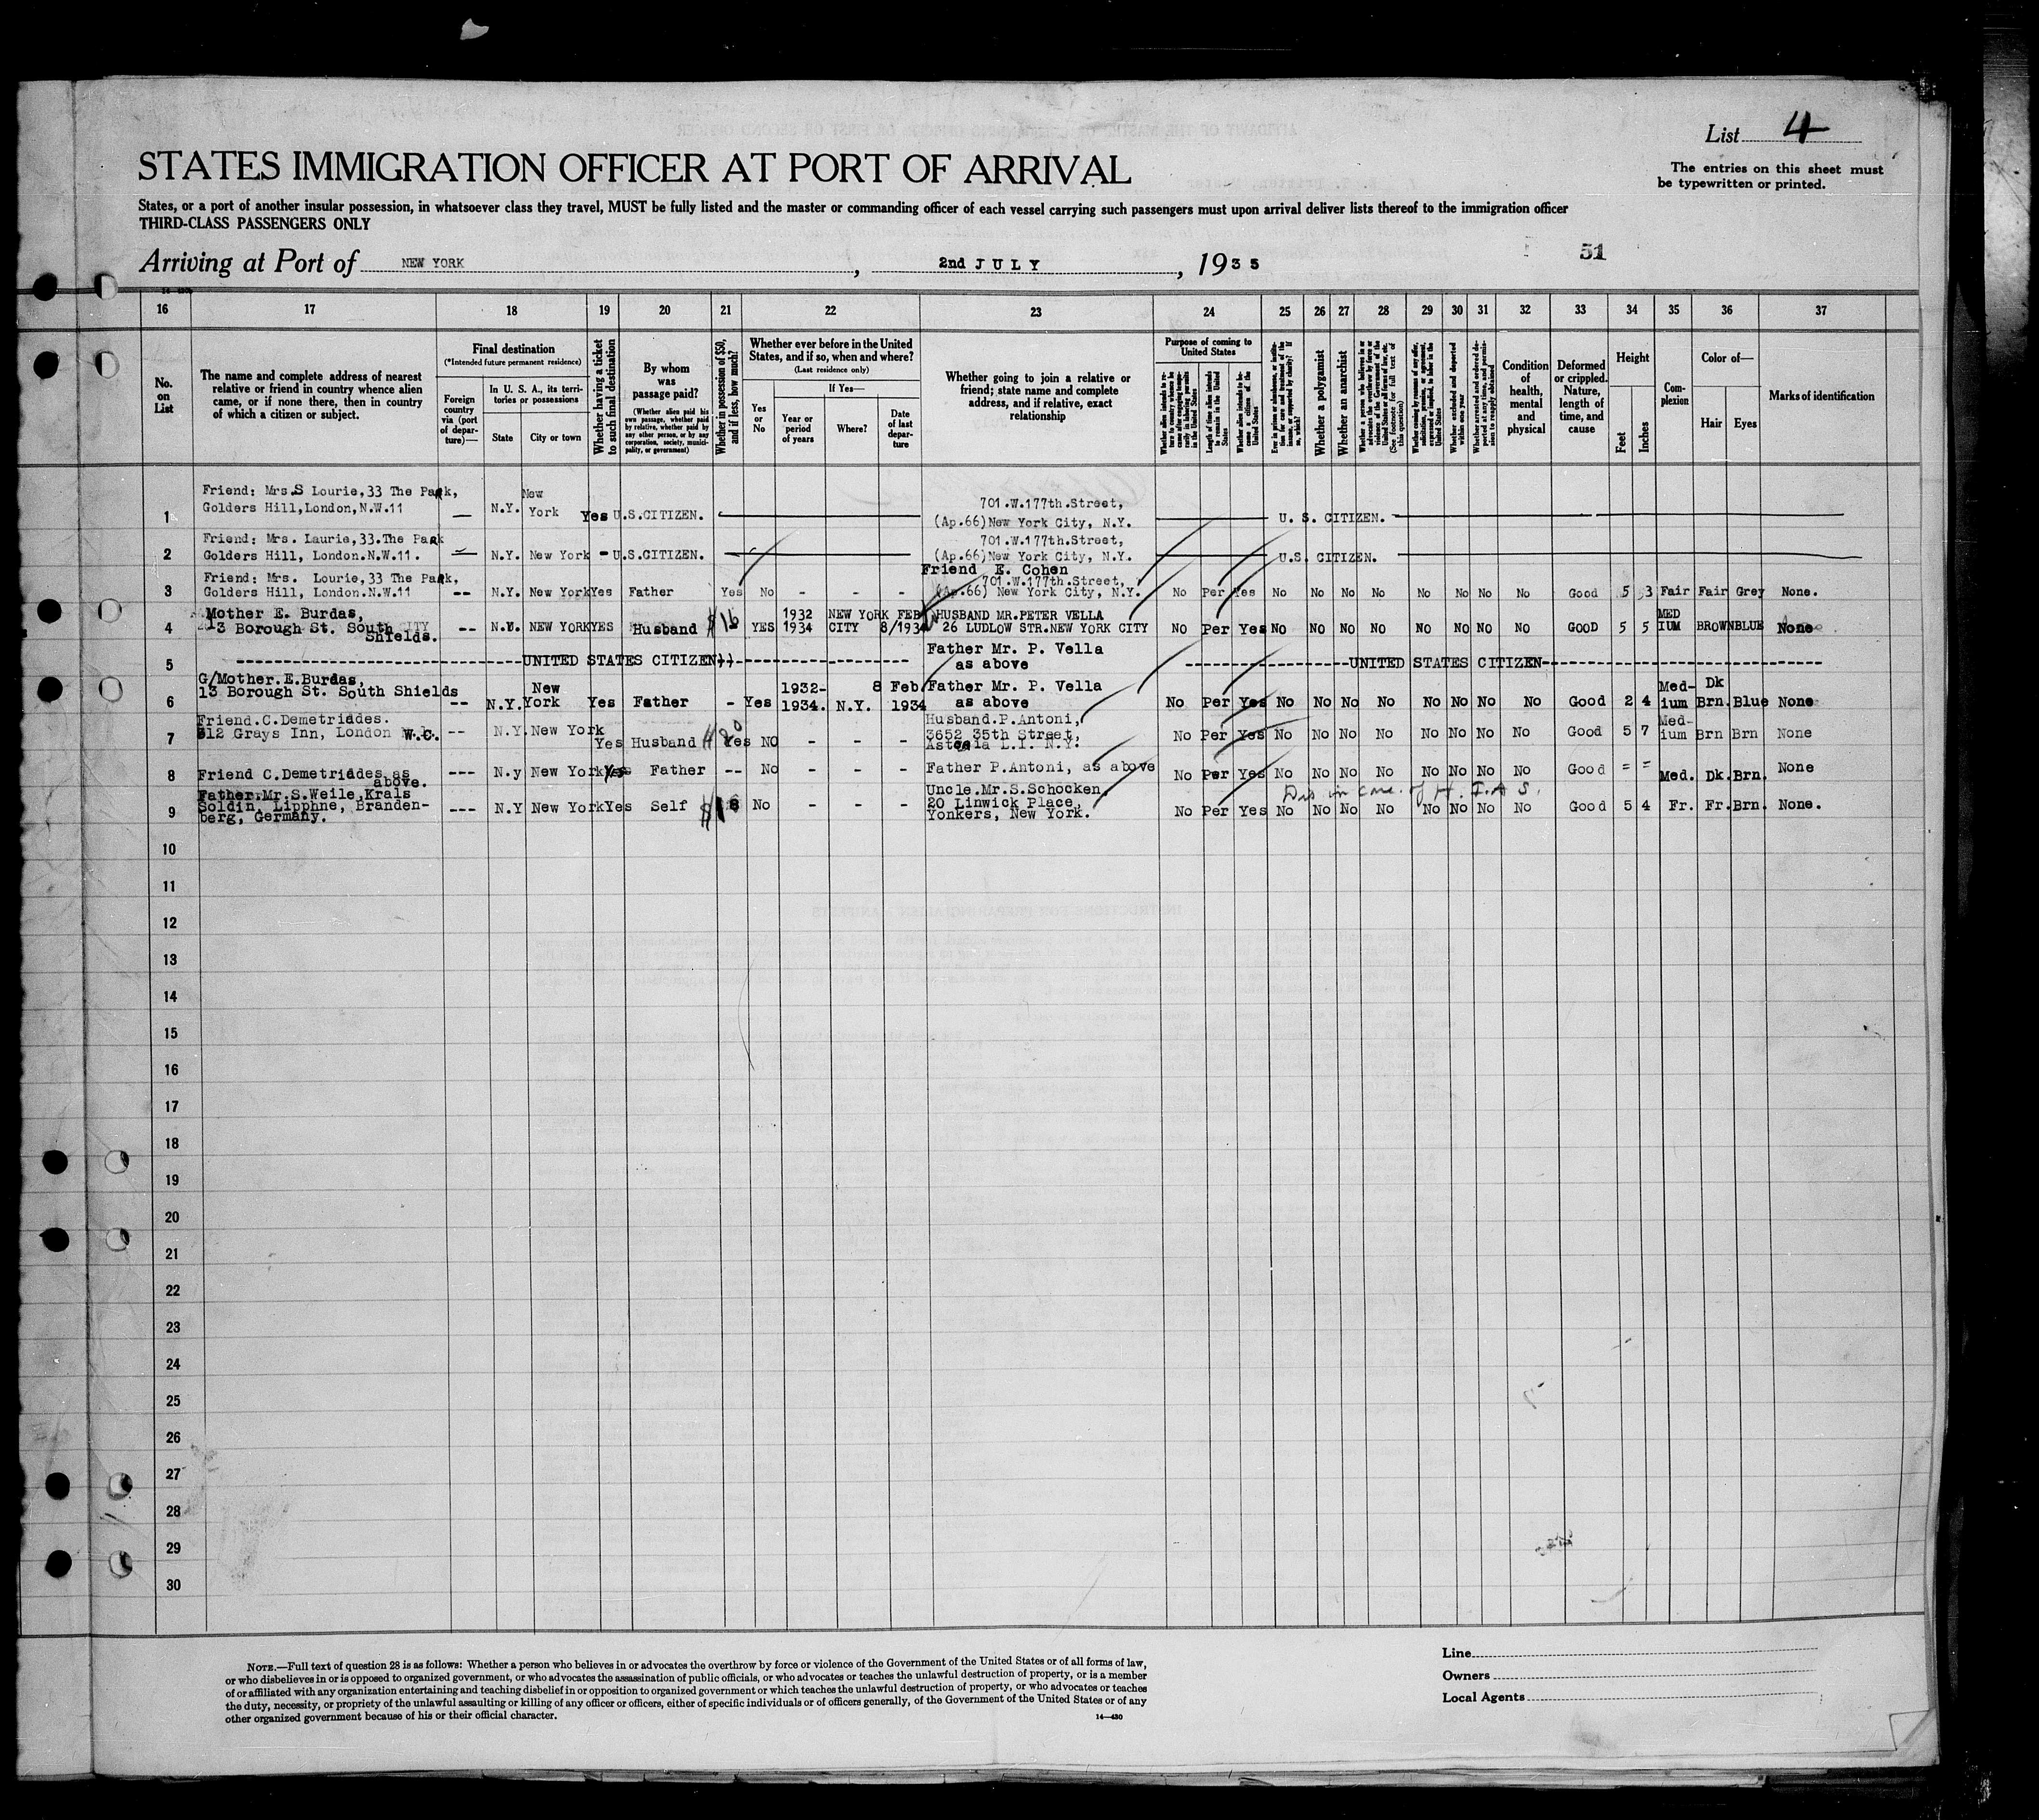 List 4
The entries on this sheet must
be typewritten or printed.
STATES IMMIGRATION OFFICER AT PORT OF ARRIVAL
States, or a port of another insular possession, in whatsoever class they travel, MUST be fully listed and the master or commanding officer of each vessel carrying such passengers must upon arrival deliver lists thereof to the immigration officer
THIRD-CLASS PASSENGERS ONLY
51
Arriving at Port of NEW YORK, 2nd JULY, 1935
16 17 18 19 20 21 22 23 24 25 26 27 28 29 30 31 32 33 34 35 36 37
No. on List
The name and complete address of nearest relative or friend in country whence alien came, or if none there, then in country of which a citizen or subject.
Final destination
(*Intended future permanent residence)
Foreign country via (port of departure)—
In U. S. A., its territories or possessions
State
City or town
Whether having a ticket to such final destination
By whom was passage paid?
(Whether alien paid his own passage, whether paid by relative, whether paid by any other person, or by any corporation, society, municipality, or government)
Whether in possession of $50, and if less, how much?
Whether ever before in the United States, and if so, when and where?
(Last residence only)
Yes or No
If Yes—
Year or period of years
Where?
Date of last departure
Whether going to join a relative or friend; state name and complete address, and if relative, exact relationship
Purpose of coming to United States
Length of time alien intends to remain in the United States
Whether alien intends to become a citizen of the United States
Whether a polygamist
Whether an anarchist
Whether excluded and deported within one year
Condition of health, mental and physical
Deformed or crippled. Nature, length of time, and cause
Height
Feet
Inches
Complexion
Color of—
Hair
Eyes
Marks of identification
1 Friend: Mrs.S Lourie,33 The Park, Golders Hill,London,N.W.11 — N.Y. New York Yes U.S.CITIZEN. 701.W.177th.Street, (Ap.66)New York City, N.Y. U. S. CITIZEN.
2 Friend: Mrs. Laurie,33.The Park Golders Hill, London.N.W.11. — N.Y. New York - U.S.CITIZEN. 701.W.177th.Street, (Ap.66)New York City, N.Y. U.S. CITIZEN.
3 Friend: Mrs. Lourie,33 The Park, Golders Hill, London.N.W.11 -- N.Y. New York Yes Father Yes No - - - Friend E. Cohen 701.W.177th.Street, (Ap.66) New York City, N.Y. No Per Yes No No No No No No No No Good 5 3 Fair Fair Grey None.
4 Mother E. Burdas, 13 Borough St. South Shields. -- N.Y. NEW YORK YES Husband $16 YES 1932 1934 NEW YORK CITY FEB 8/1934 HUSBAND MR.PETER VELLA 26 LUDLOW STR.NEW YORK CITY No Per Yes No No No No No No No No GOOD 5 5 MEDIUM BROWN BLUE None
5 ----UNITED STATES CITIZEN)---- Father Mr. P. Vella as above ----UNITED STATES CITIZEN----
6 G/Mother.E.Burdas, 13 Borough St. South Shields -- N.Y. New York Yes Father - Yes 1932-1934. N.Y. 8 Feb. 1934 Father Mr. P. Vella as above No Per Yes No No No No No No No No Good 2 4 Med-ium Dk Brn. Blue None
7 Friend.C.Demetriades. 312 Grays Inn, London W.C. -- N.Y. New York Yes Husband Yes NO - - - Husband.P.Antoni, 3652 35th Street, Astoria L.I. N.Y. No Per Yes No No No No No No No No Good 5 7 Med-ium Brn Brn None
8 Friend C.Demetriades as above. --- N.y New York Yes Father -- No - - - Father P.Antoni, as above No Per Yes No No No No No No No No Good = = Med. Dk. Brn. None
9 Father.Mr.S.Weile,Krals Soldin, Lipphne, Brandenberg, Germany. --- N.Y New York Yes Self $18 No - - - Uncle.Mr.S.Schocken, 20 Linwick Place, Yonkers, New York. Dis in care of H.I.A.S. No Per Yes No No No No No No No No Good 5 4 Fr. Fr. Brn. None.
10
11
12
13
14
15
16
17
18
19
20
21
22
23
24
25
26
27
28
29
30
NOTE.—Full text of question 28 is as follows: Whether a person who believes in or advocates the overthrow by force or violence of the Government of the United States or of all forms of law,
or who disbelieves in or is opposed to organized government, or who advocates the assassination of public officials, or who advocates or teaches the unlawful destruction of property, or is a member
of or affiliated with any organization entertaining and teaching disbelief in or opposition to organized government or which teaches the unlawful destruction of property, or who advocates or teaches
the duty, necessity, or propriety of the unlawful assaulting or killing of any officer or officers, either of specific individuals or of officers generally, of the Government of the United States or of any
other organized government because of his or their official character.
14—430
Line
Owners
Local Agents